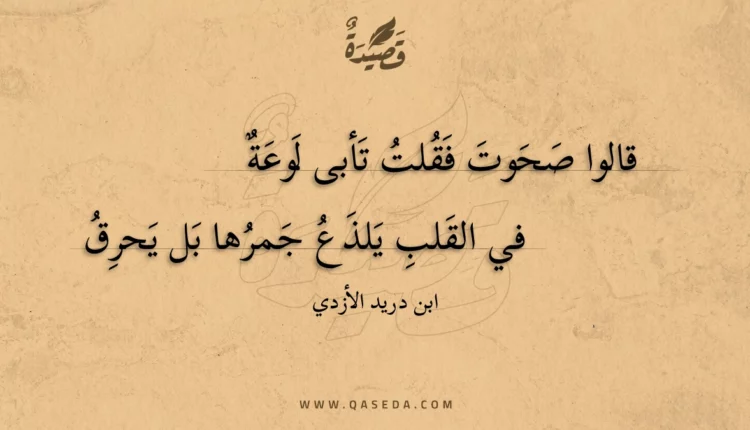 قَصِيدَةٌ
قالوا صَحَوتَ فَقُلتُ تَأبى لَوعَةٌ
في القَلبِ يَلذَعُ جَمرُها بَل يَحرِقُ
ابن دريد الأزدي
WWW.QASEDA.COM